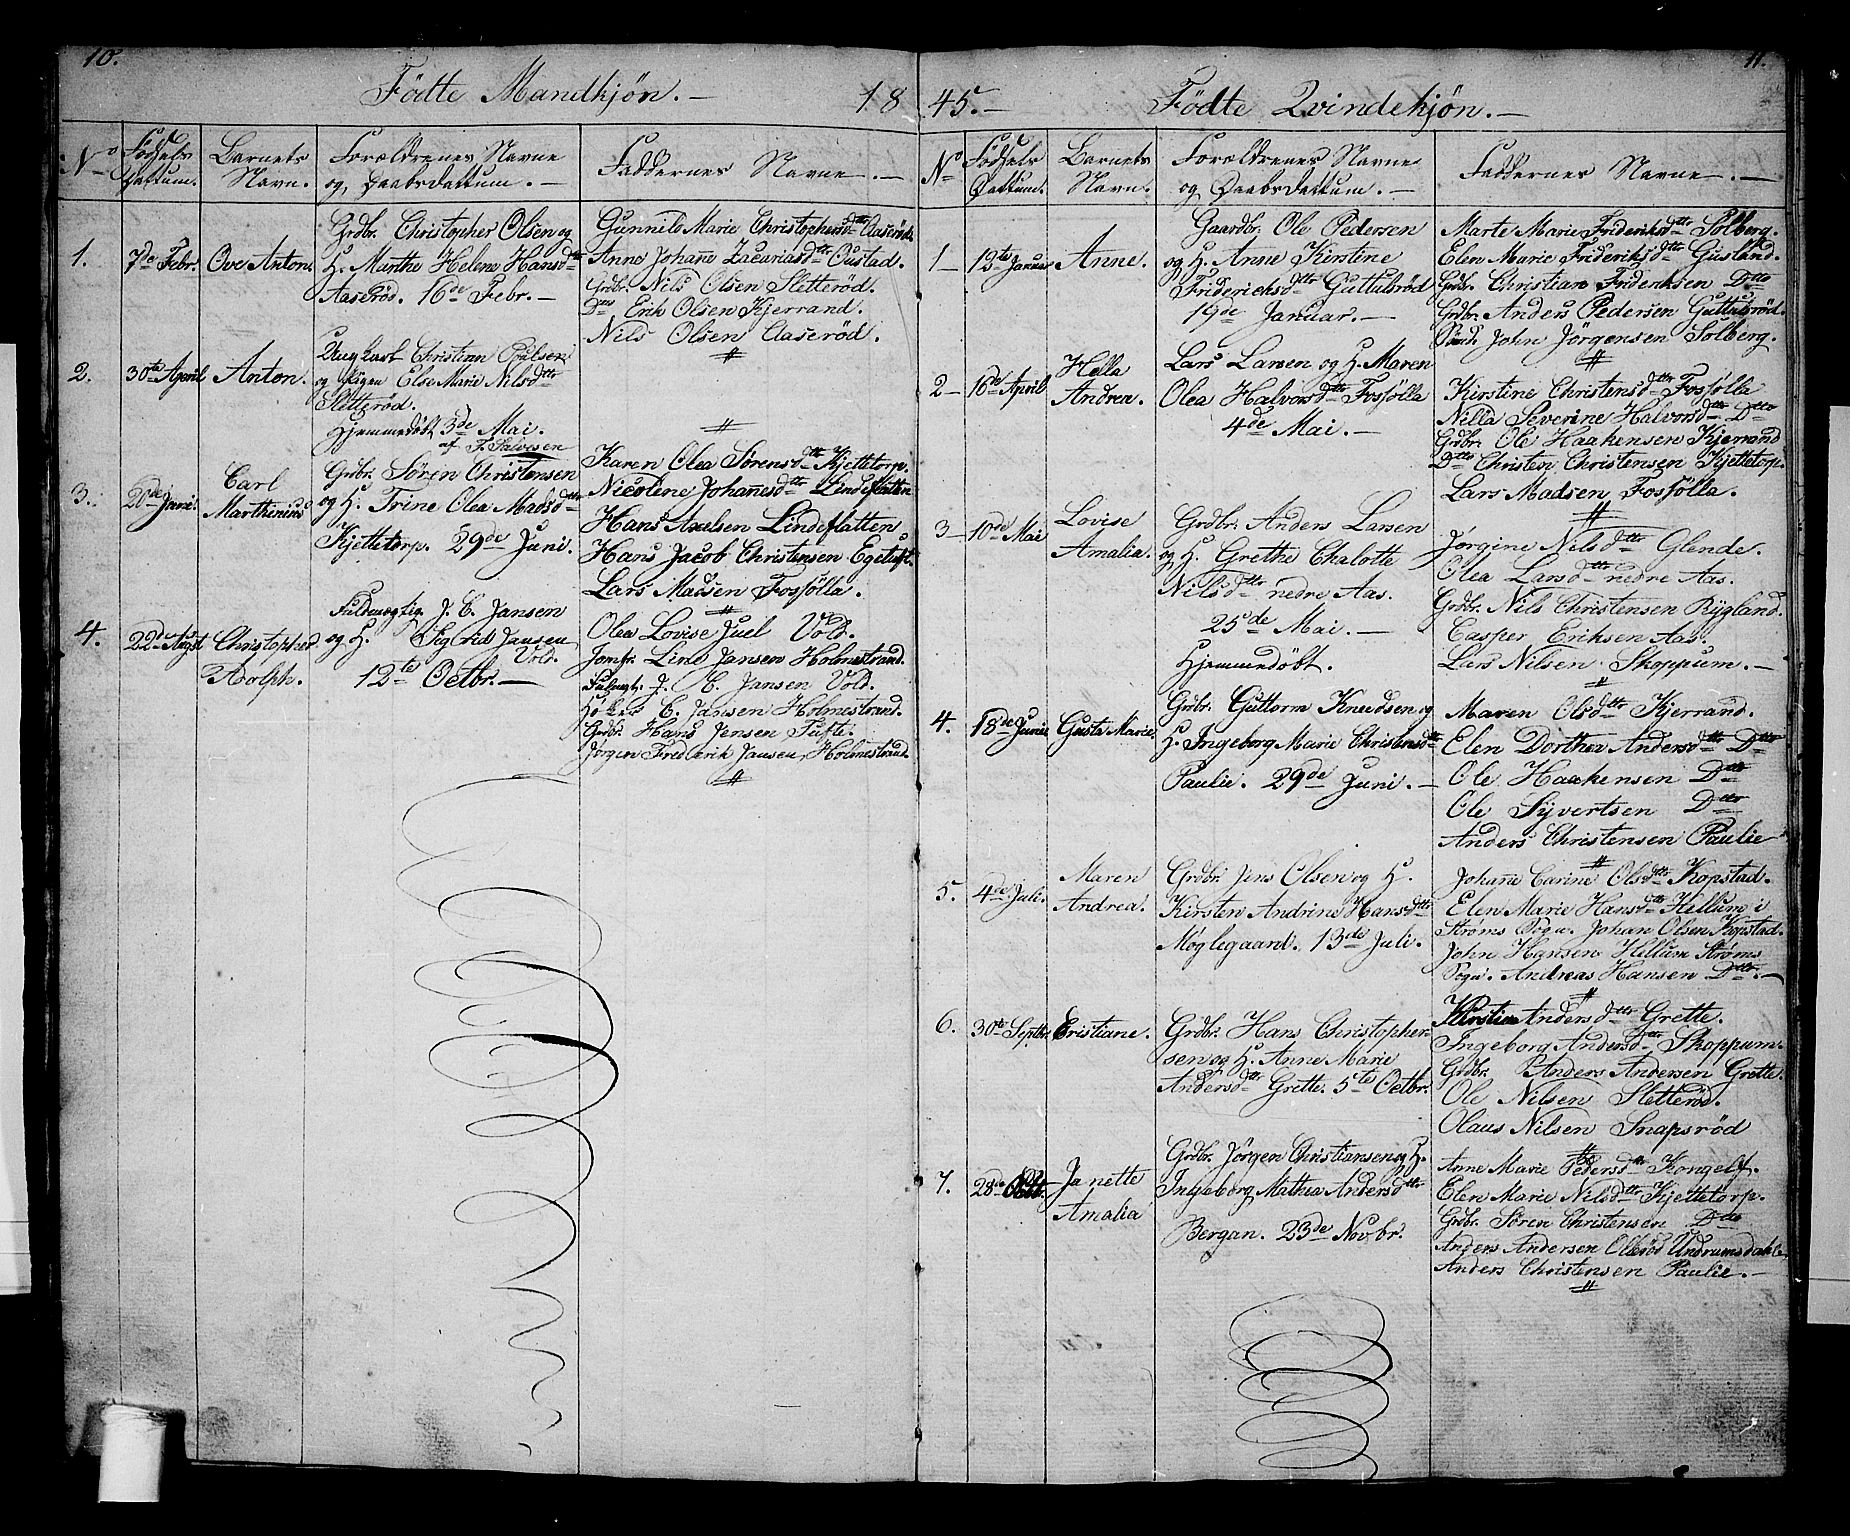 10.
Födte Mandkjön. — 18
No
Födsels Dattum.
Barnets Navn.
Forældrenes Navne og Daabsdattum. —
Faddernes Navne. —
1.
7de Febr.
Ove Anton.
Grdbr. Christopher Olsen og
H. Marthe Helene Hansdttr
Aaseröd. 16de Febr. —
Gunnild Marie Christophersdttr Aaseröd.
Anne Johañe Zacariasdttr Oustad.
Grdbr. Nils Olsen Sletteröd.
Dtto Erik Olsen Kjerrand.
Nils Olsen Aaseröd.
2.
30te April
Anton.
Ung Karl Christian Poulsen
og Pigen Else Marie Nilsdttr
Sletteröd.
Hjemmedöbt 3de Mai.
af F. Salvesen
3.
20de Juni.
Carl
Marthinius
Grdbr. Sören Christensen
og H. Trine Olea Madsdttr
Kjettetorp. 29de Juni.
Karen Olea Sörensdttr Kjettetorp.
Nicoline Johañesdttr Lindeflatten
Hans Axelsen Lindeflatten
Hans Jacob Christensen Egetuft.
Lars Madsen Fossjölla.
4.
22de Augst
Christopher
Adolph.
Fuldmægtig J. C. Jansen
og H. Sigrid Jansen
Vold.
12te Octbr. —
Olea Lovise Juel Vold.
Jomfr. Line Jansen Holmestrand.
Fulmgt. J. C. Jansen Vold.
Höker C. Jansen Holmestrand.
Grdbr. Hans Jensen Tufte.
Jörgen Frederik Jansen, Holmestrand.
11.
45. — Födte Qvindekjön. —
No
Födsels Dattum.
Barnets Navn.
Forældrenes Navne og Daabsdattum. —
Faddernes Navne. —
1
12te Januar
Anne.
Gaardbr. Ole Pedersen
og H. Anne Kirstine
Fridericksdttr Guttulsröd
19de Januar. —
Marte Marie Frideriksdttr Solberg.
Elen Marie Frideriksdttr Gusland.
Grdbr. Christian Frideriksen Dtto
Grdbr. Anders Pedersen Guttulsröd.
John Jörgensen Solberg.
2
16de April
Hella
Andrea.
Lars Larsen og H. Maren
Olea Halvorsdttr Fossjölla
4de Mai. —
Kirstine Christensdttr Fossjölla
Nilla Severine Halvorsdttr Dtto
Grdbr. Ole Haakensen Kjerrand
Dtto Christen Christensen Kjettetorp.
Lars Madsen Fossjölla.
3
10de Mai
Lovise
Amalia.
Grdbr. Anders Larsen
og H. Grethe Chalotte
Nilsdttr nedre Aas.
25de Mai. —
Hjemmedöbt.
Jørgine Nilsdttr Glende.
Olea Larsd nedre Aas.
Grdbr. Nils Christensen Rygland.
Casper Eriksen Aas.
Lars Nilsen Skoppum. —
4.
18de Juni
Gusta Marie.
Grdbr. Guttorm Knudsen og
H. Ingeborg Marie Christensdttr
Paulie. 29de Juni. —
Maren Olsdttr Kjerrand.
Elen Dorthea Andersdttr Dtto
Ole Haakensen Dtto
Ole Syvertsen Dtto
Anders Christensen Paulie
5.
4de Juli.
Maren
Andrea.
Grdbr. Jens Olsen og H.
Kirsten Andrine Hansdttr
Møglegaard. 13de Juli.
Johañe Carine Olsdttr Kopstad.
Elen Marie Hansdttr Hellum i
Strøms Sogn. Johan Olsen Kopstad.
John Hansen Hillum Strøms
Sogn. Andreas Hansen Dtto. —
6.
30te Septbr.
Cristiane.
Grdbr. Hans Christopher-
sen og H. Anne Marie
Andersdttr Grette. 5te Octbr.
Kirstine Andersdttr Grette.
Ingeborg Andersdttr Skoppum.
Grdbr. Anders Andersen Grette.
Ole Nilsen Sletteröd.
Olaus Nilsen Snapsröd
7.
28de Octbr.
Janette
Amalia
Grdbr. Jörgen Christiansen og H.
Ingeborg Mathea Andersdttr
Bergan. 23de Novbr.
Anne Marie Pedersdttr Kongelf.
Elen Marie Nilsdttr Kjettetorp.
Grdbr. Søren Christensen Dtto
Anders Andersen Olleröd Undrumsdahle
Anders Christensen Paulie. —